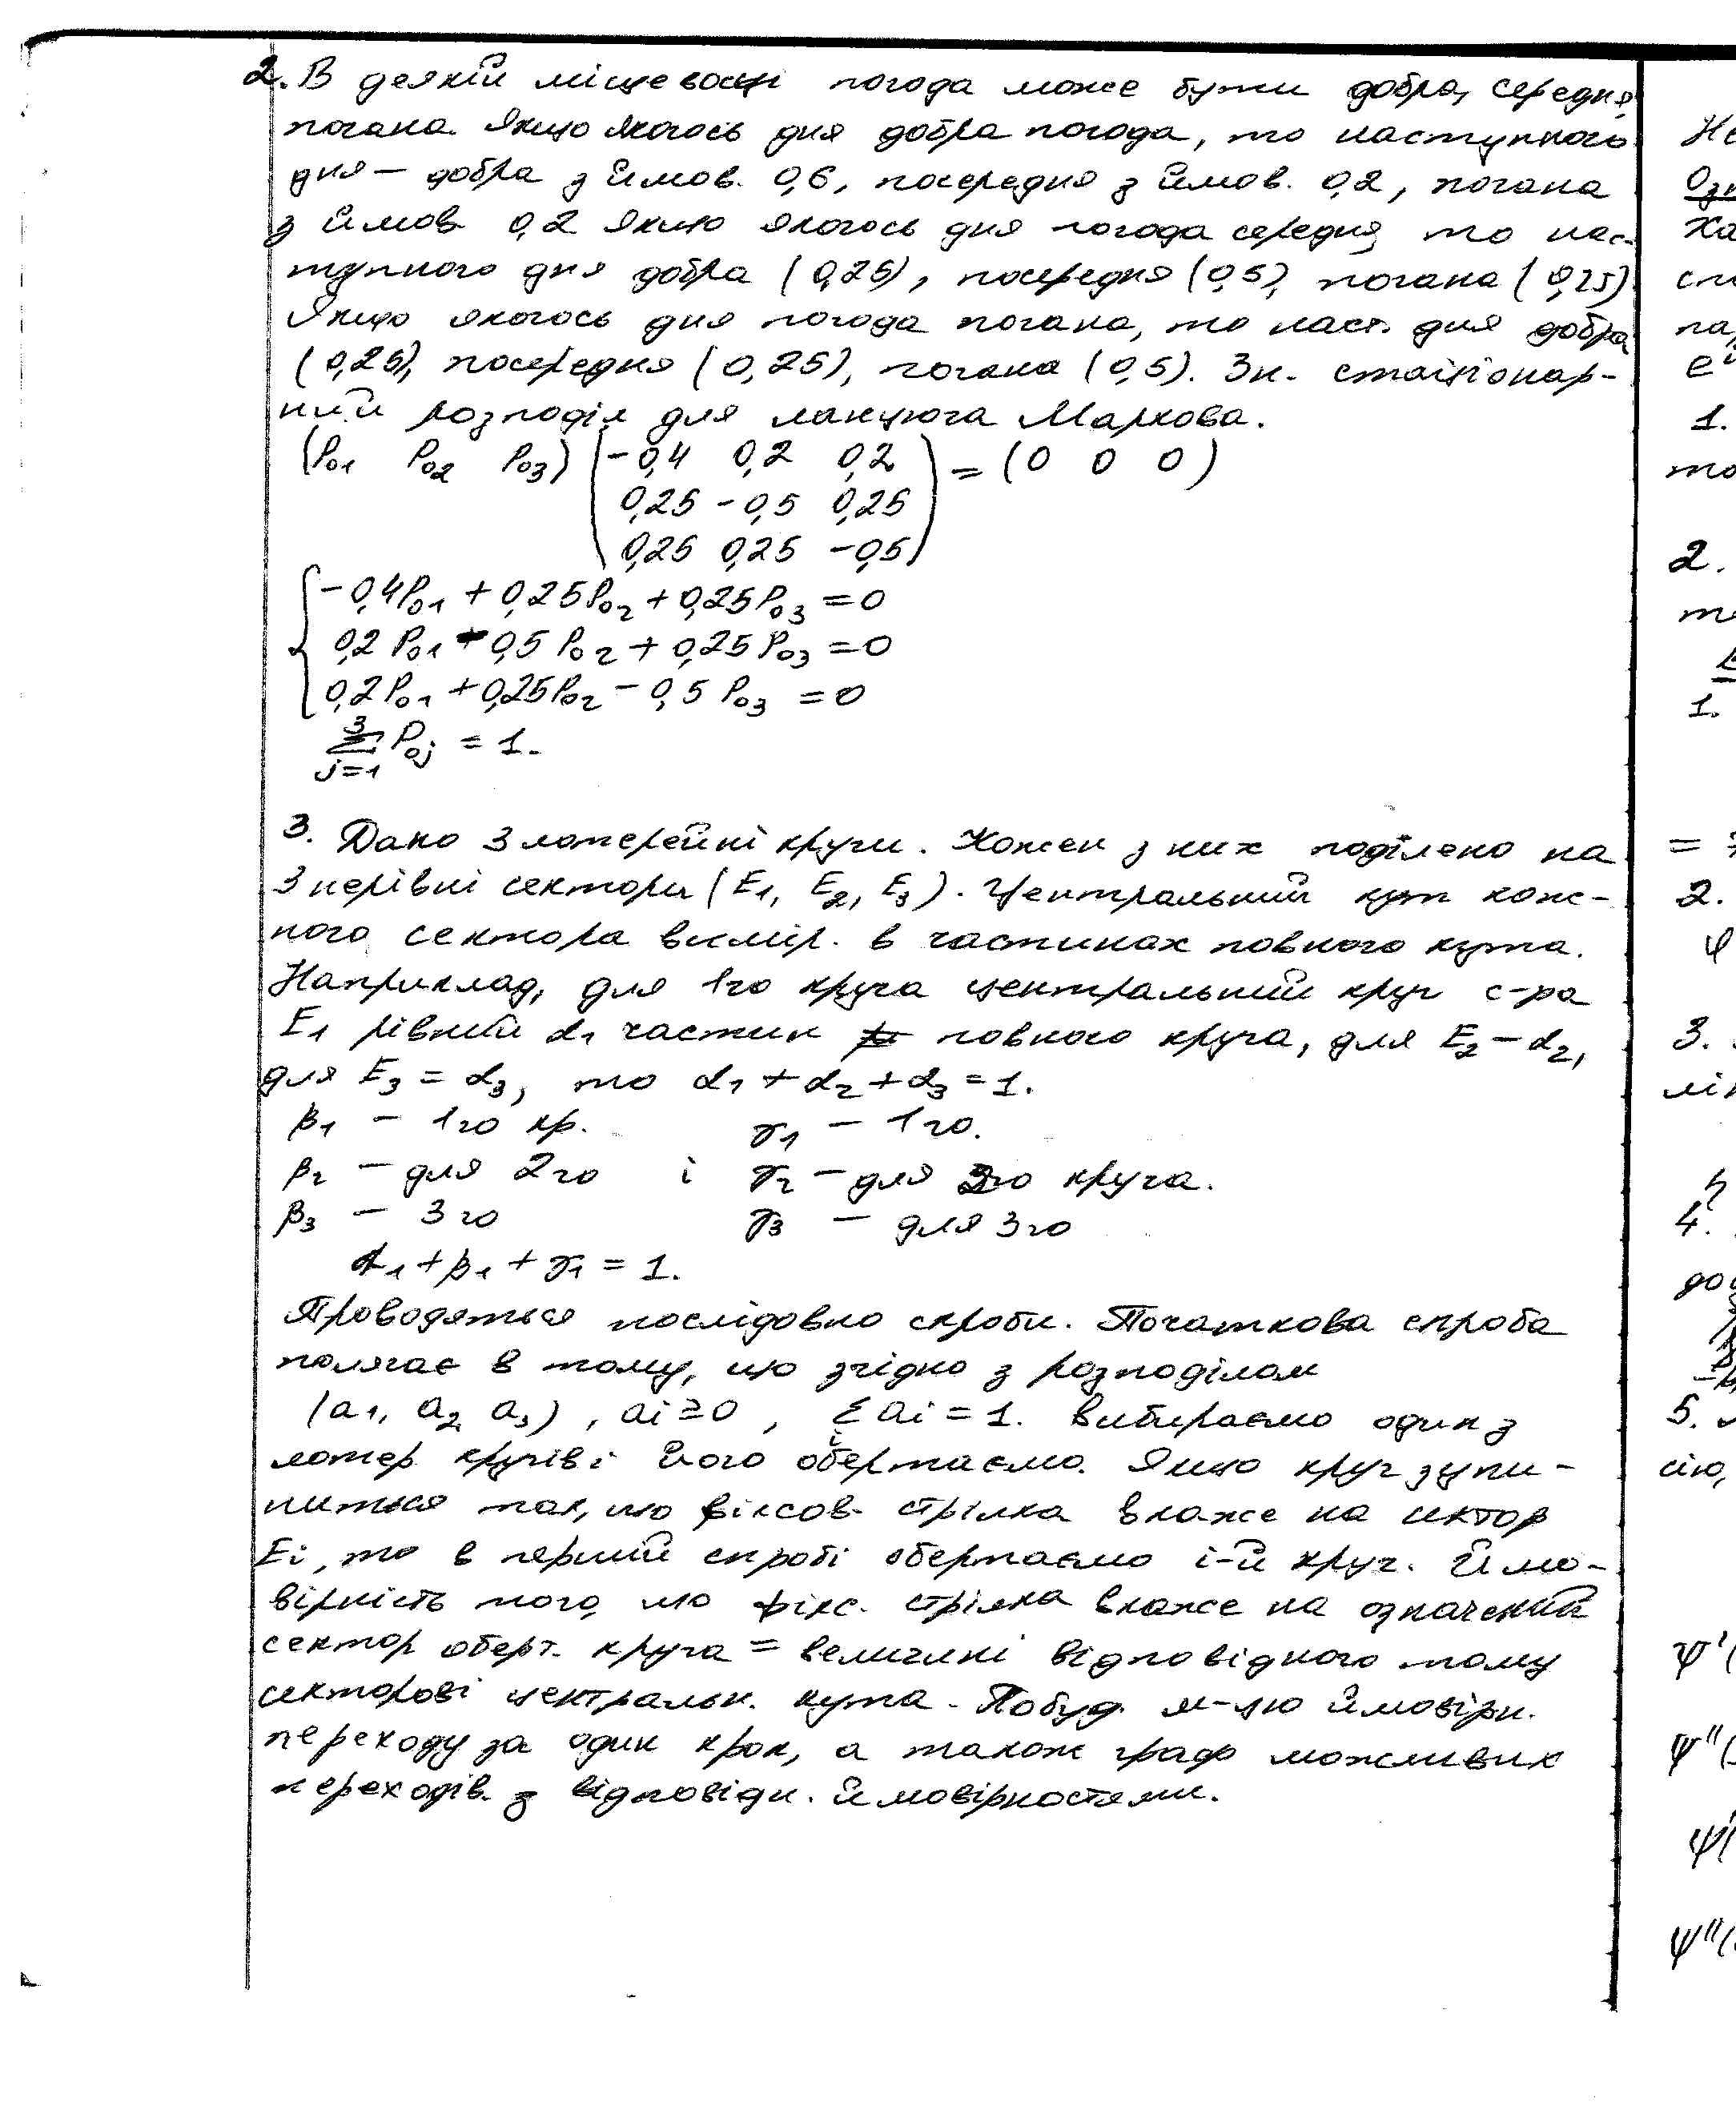 2. В деякій місцевості погода може бути добра, середня,
погана. Якщо якогось дня добра погода, то наступного
дня – добра з ймов. 0,6, посередня з ймов. 0,2, погана
з ймов. 0,2 Якщо якогось дня погода середня, то нас-
тупного дня добра (0,25), посередня (0,5), погана (0,25)
Якщо якогось дня погода погана, то наст. дня добра
(0,25), посередня (0,25), погана (0,5). Зн. стаціонар-
ний розподіл для ланцюга Маркова.
(P01 P02 P03) (-0,4 0,2 0,2) = (0 0 0)
0,25 -0,5 0,25
0,25 0,25 -0,5
-0,4P01 + 0,25P02 + 0,25P03 = 0
0,2P01 - 0,5P02 + 0,25P03 = 0
0,2P01 + 0,25P02 - 0,5P03 = 0
3 Σ j=1 P0j = 1.
3. Дано 3 лотерейні круги. Кожен з них поділено на
3 нерівні сектори (E1, E2, E3). Центральний кут кож-
ного сектора вимір. в частинах повного кута.
Наприклад, для 1го круга центральний круг с-ра
E1 рівний α1 частин повного круга, для E2 – α2,
для E3 = α3, то α1 + α2 + α3 = 1.
β1 – 1го кр. γ1 – 1го.
β2 – для 2го і γ2 – для 2го круга.
β3 – 3го γ3 – для 3го
α1 + β1 + γ1 = 1.
Проводяться послідовно спроби. Початкова спроба
полягає в тому, що згідно з розподілом
(a1, a2, a3), ai ≥ 0, Σ i ai = 1. Вибираємо один з
лотер. кругів і його обертаємо. Якщо круг зупи-
ниться так, що фіксов. стрілка вкаже на сектор
Ei, то в першій спробі обертаємо i-й круг. Ймо-
вірність того, що фікс. стрілка вкаже на означений
сектор оберт. круга = величині відповідного тому
секторові центральн. кута. Побуд. м-цю ймовірн.
переходу за один крок, а також граф можливих
переходів з відповідн. ймовірностями.
1.
2.
1.
2.
3.
4.
5.